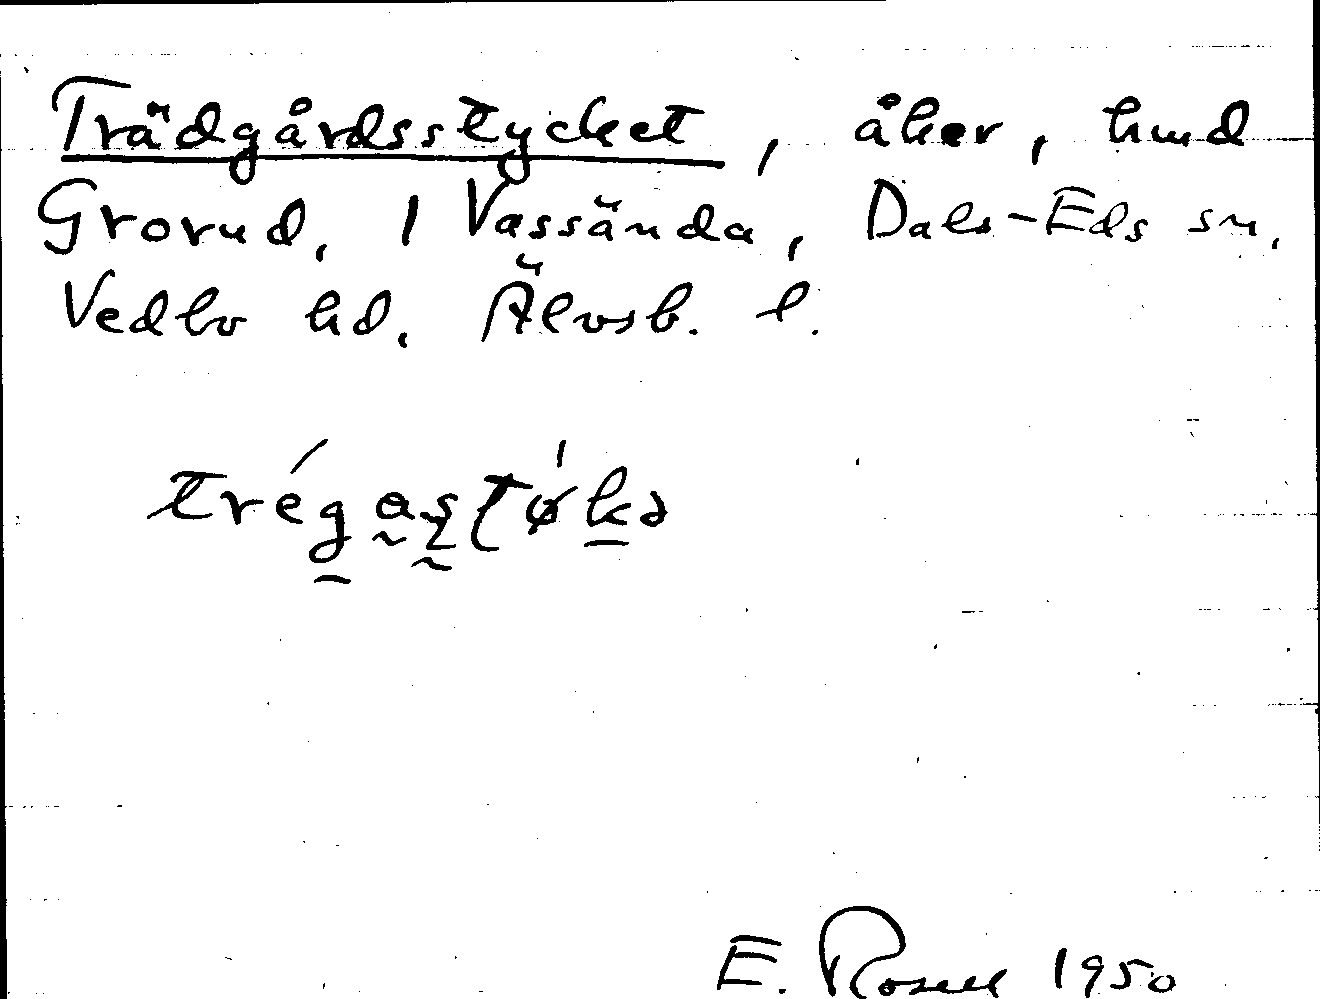 Trädgårdsstycket, åker, hmd
Grorud, 1 Vassända, Dals-Eds sn,
Vedbo hd, Älvsb. l.
E. Rosell 1950